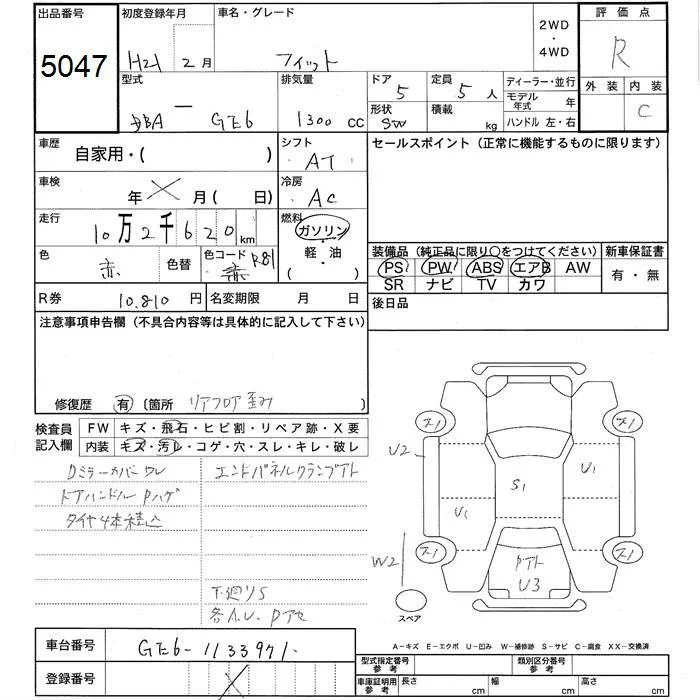 出品番号 初度登録年月 車名・グレード 2WD・4WD 評価点
5047 H21 2月 フィット R
外装 内装
C
型式 排気量 ドア 定員 ディーラー・並行
DBA － GE6 1300 cc 5 5人 モデル年式 年
形状 SW 積載 kg ハンドル 左・右
車歴 自家用・( ) シフト AT セールスポイント(正常に機能するものに限ります)
車検 年 月( 日) 冷房 AC
走行 10万2千620km 燃料 ガソリン・軽・油( )
色 赤 色替 色コード R81 赤
装備品(純正品に限り○をつけてください) 新車保証書
PS PW ABS エアB AW 有・無
SR ナビ TV カワ
R券 10.810 円 名変期限 月 日 後日品
注意事項申告欄(不具合内容等は具体的に記入して下さい)
修復歴 有 〔箇所 リアフロア歪み 〕
検査員記入欄 FW キズ・飛石・ヒビ割・リペア跡・X要
内装 キズ・汚レ・コゲ・穴・スレ・キレ・破レ
Dミラーカバーワレ エンドパネルクランプアト
ドアハンドルPハゲ
タイヤ4本積込
下廻りS
U2 U1
S1
U1
W2 Pアト
U3
スペア
A－キズ E－エクボ U－凹み W－補修跡 S－サビ C－腐食 XX－交換済
車台番号 GE6-1133971.
登録番号
型式指定番号 参考 類別区分番号 参考
車庫証明用 参考 長さ cm 幅 cm 高さ cm